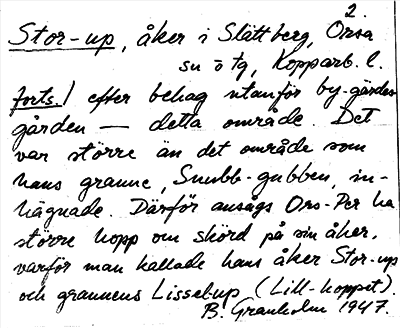 2.
Stor-up, åker i Slättberg, Orsa
sn o tg, Kopparb. l.
forts./ efter behag utanför by-gärdes-
gården — detta område. Det
var större än det område som
hans granne, Snubb-gubben, in-
hägnade. Därför ansågs Ors-Per ha
större hopp om skörd på sin åker,
varför man kallade hans åker Stor-up
och grannens Lissel-up (Lill-hoppet).
B. Granholm 1947.